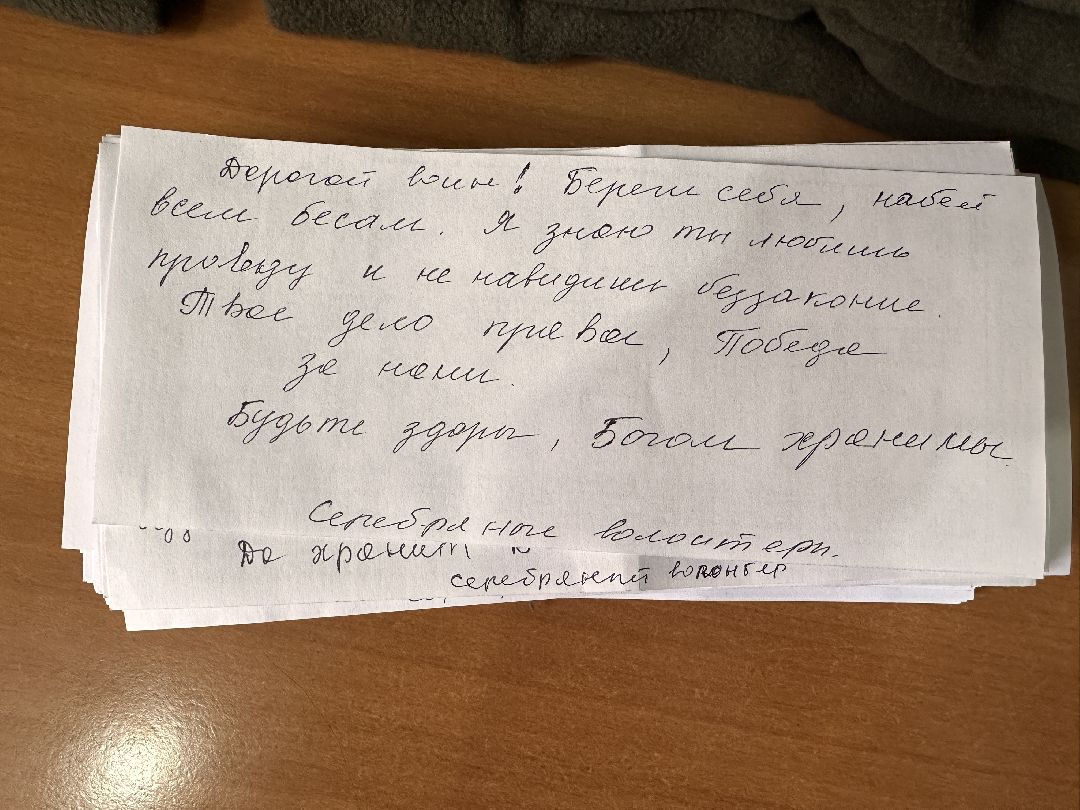 Дорогой воин! Береги себя, набей
всем бесам. Я знаю ты любишь
правду и не навидишь беззаконие.
Твое дело правое, Победа
за нами.
Будьте здоры, Богом хранимы.
Серебряные волонтеры.
Да хранит
серебряный волонтер